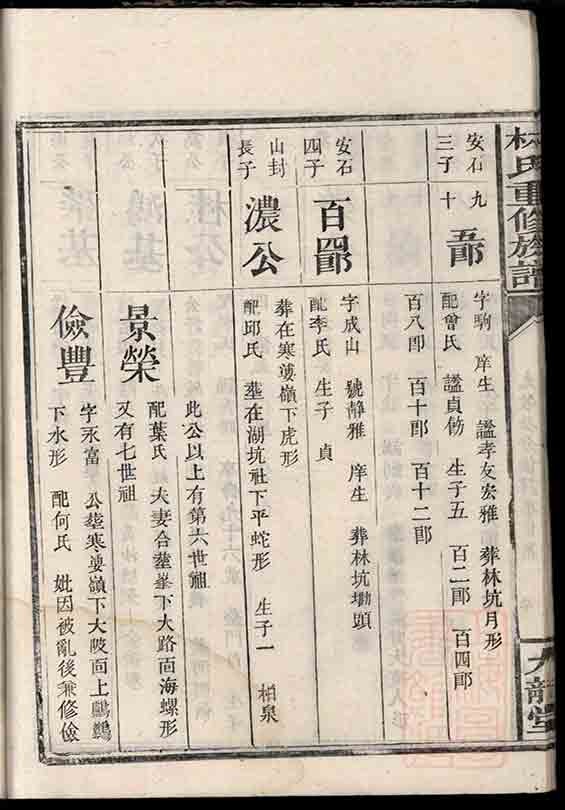 林氏重修族譜
九龍堂
安石 九
三子 十
五郎
字駒 庠生 諡孝友宏雅 葬林坑月形
配曾氏 諡貞勤 生子五 百二郎 百四郎
百八郎 百十郎 百十二郎
安石
四子
百四郎
字成山 號靜雅 庠生 葬林坑墈頭
配李氏 生子 貞
山封
長子
濃公
葬在寒婆嶺下虎形
配邱氏 塟在湖坑社下平蛇形 生子一 柏泉
此公以上有第六世祖
景榮
配葉氏 夫妻合塟峯下大路面海螺形
又有七世祖
儉豐
字永富 公塟寒婆嶺下大陂面上鸕鷀
下水形 配何氏 妣因被亂後兼修儉